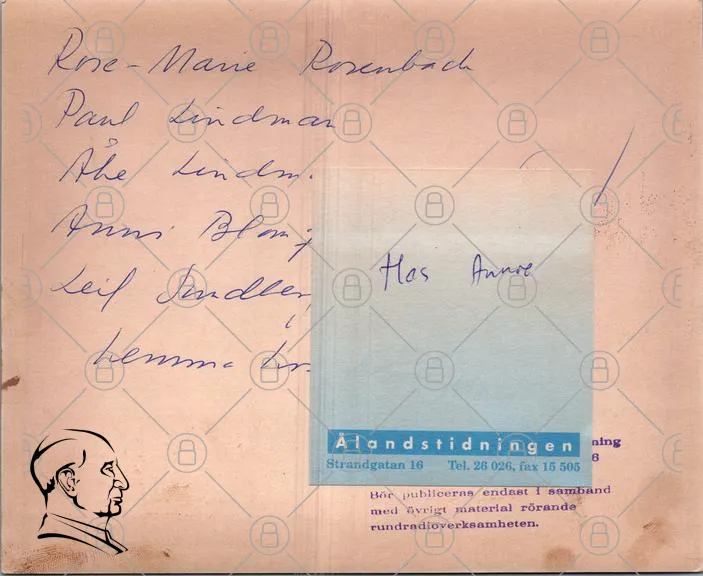 Rose-Marie Rosenbach
Paul Lindman
Åke
Anni
Leif
Hos Annie
Ålandstidningen
Strandgatan 16 Tel. 26 026, fax 15 505
ning
6
Bör publiceras endast i samband
med övrigt material rörande
rundradioverksamheten.